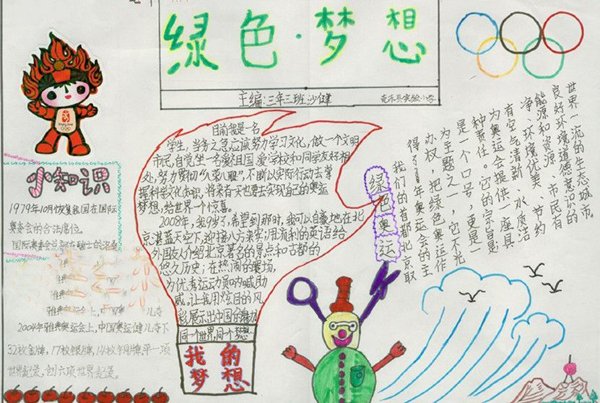 绿色·梦想
主编:三年三班沙健
实验小学
小知识
1979年10月恢复我国在国际
奥委会的合法席位。
国际奥委会总部在瑞士的洛桑
2004年雅典奥运会上,中国奥运健儿夺下
32枚金牌,17枚银牌,14枚铜牌,平一项
世界纪录,创六项世界纪录。
目前我是一名
学生,当务之急应该努力学习文化,做一个文明
市民,自觉坐一名爱祖国,爱学校和同学友好相
掌握科学文化知识,将来有一天也要去实现自己的奥运
梦想,给世界一个惊喜。
2008年,我9岁,希望到那时,我可以自豪地在北
京湛蓝天空下,迎接八方来宾;用流利的英语给
外国友人介绍北京著名的景点和古都的
悠久历史;在热闹的赛场,
为优秀运动员呐喊助
威,让我用炫目的风
采展示出中国的
同一个世界,同一个梦想
我的
梦想
绿色奥运
我们的首都北京取
得了
年奥运会的主
办权,把绿色奥运作
为主题之一,它不光
是一个口号,更是
一种责任。它的宗旨是
为奥运会提供一座具
有空气清新、水质洁
净、环境优美、有节约
能源和资源、市民有
良好环境道德意识的
世界一流的生态城市